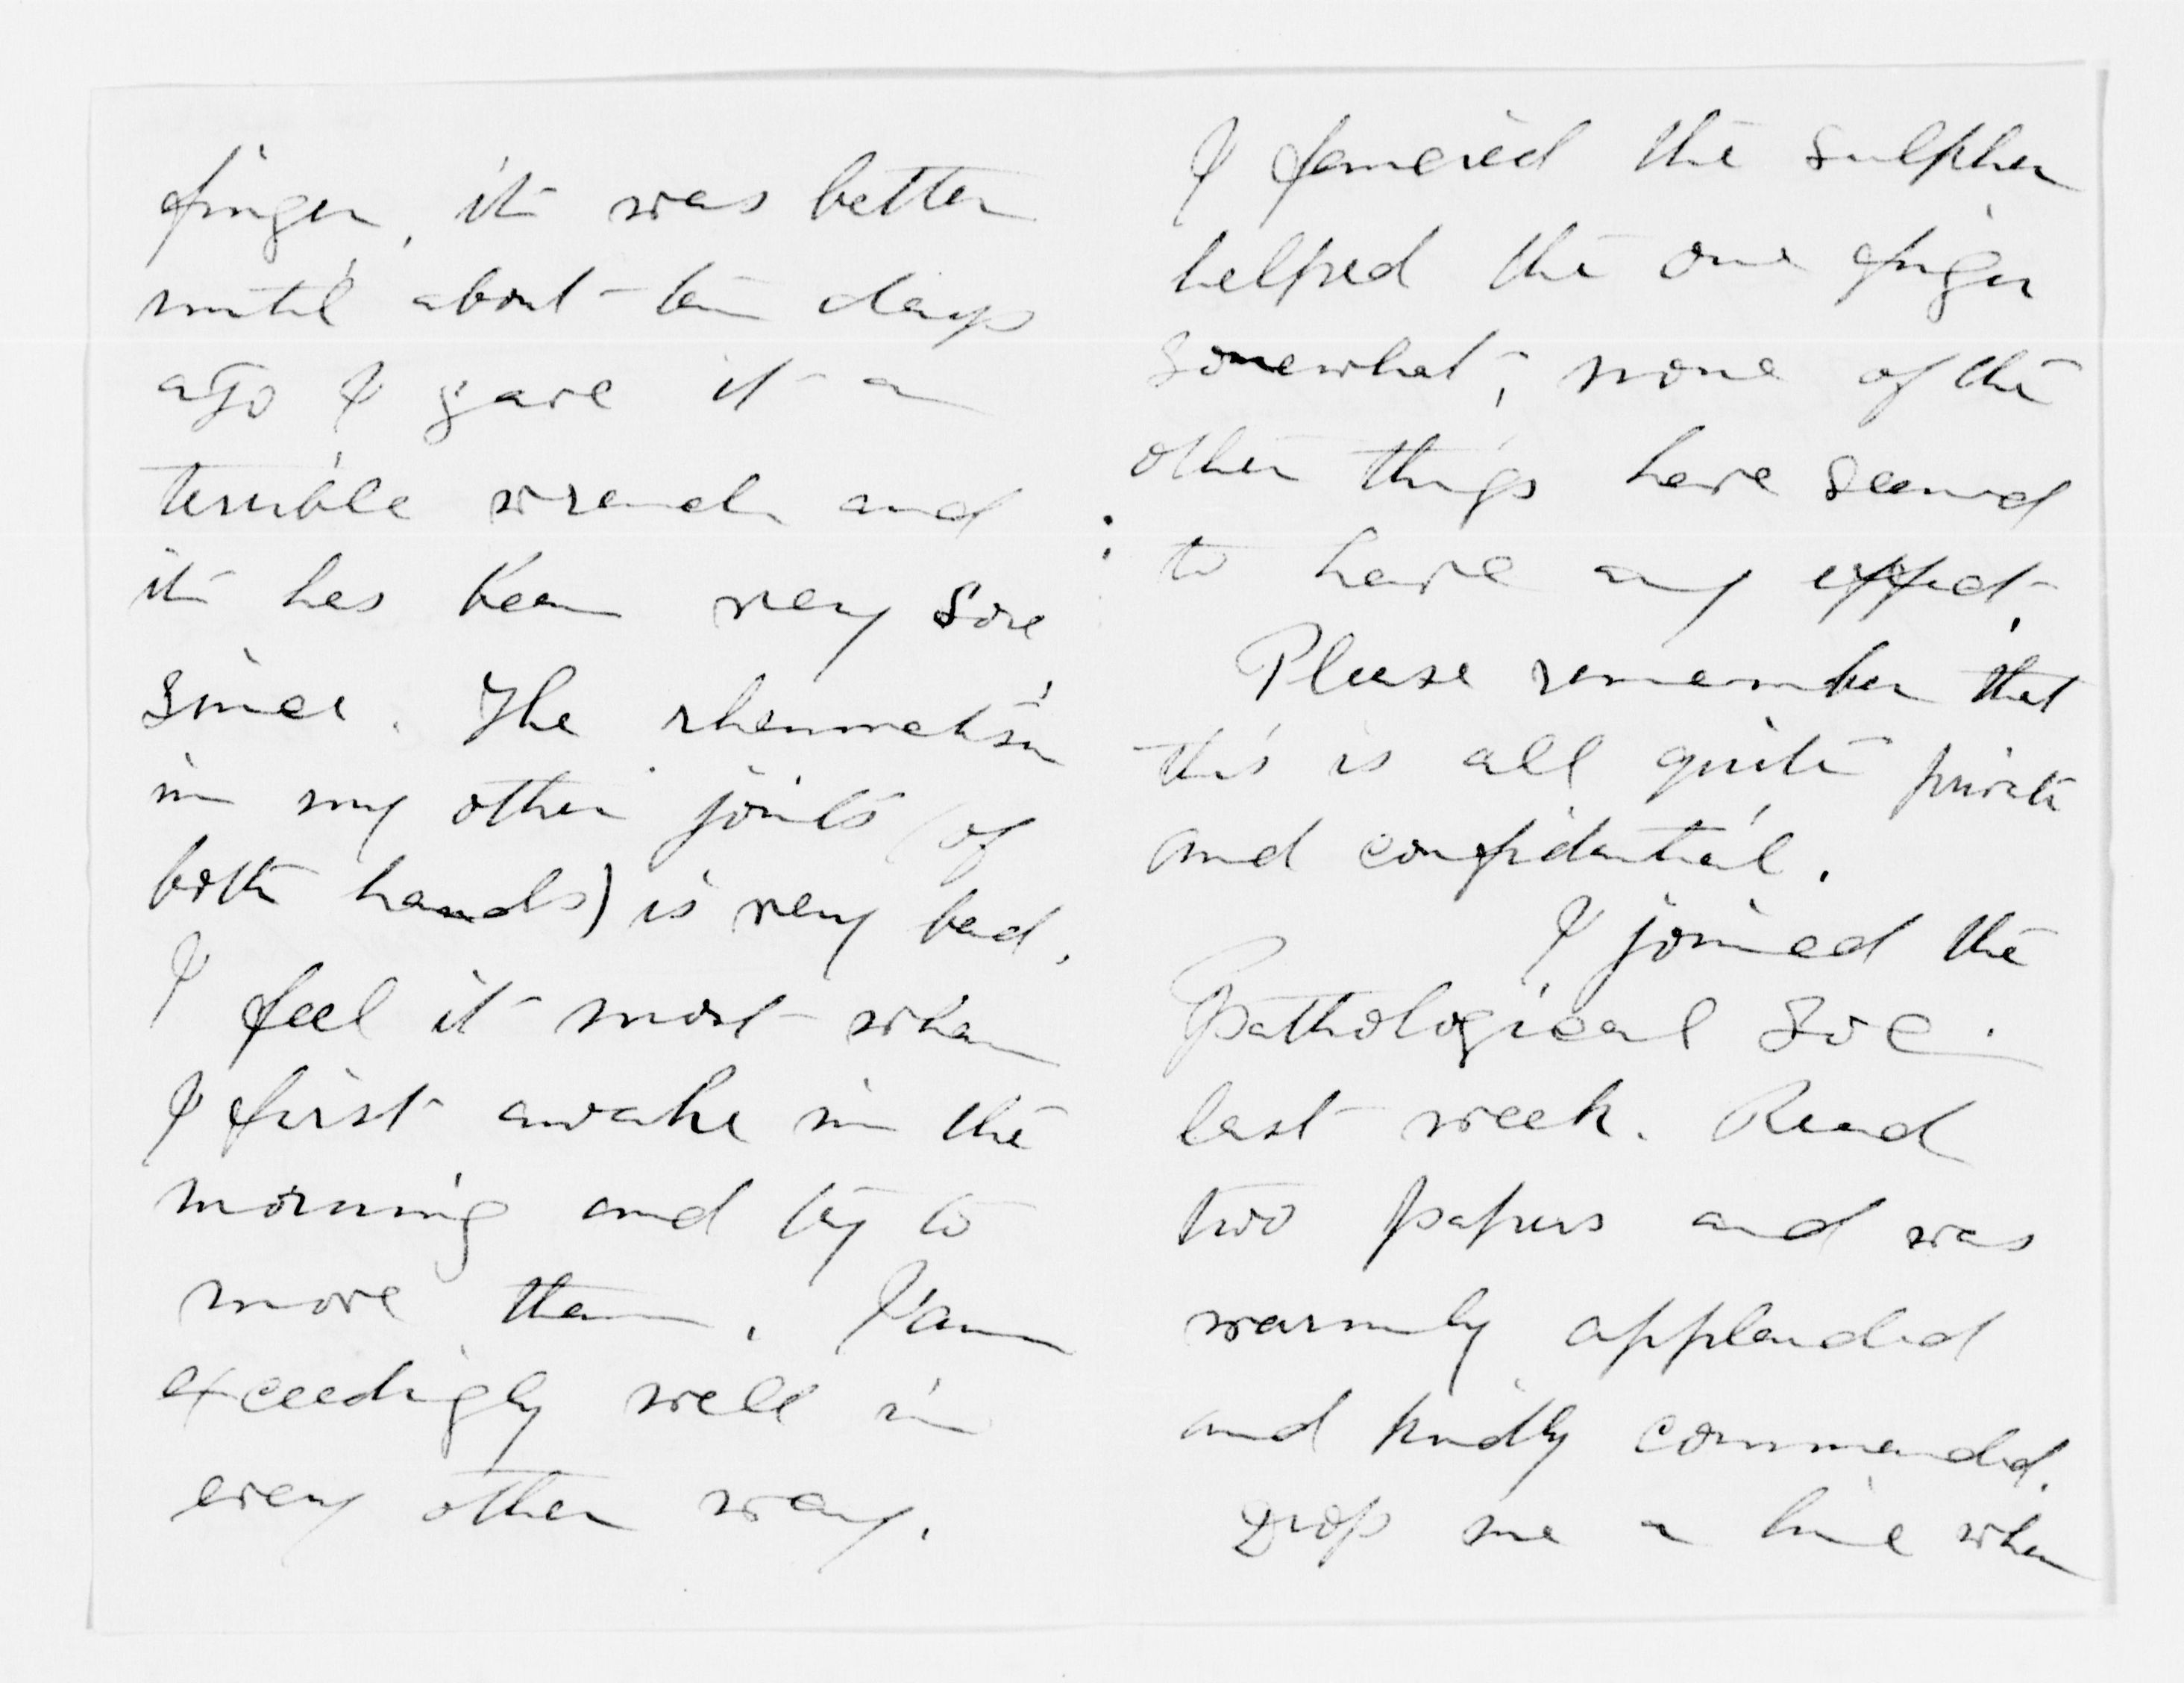 finger, it was better
until about ten days
ago I gave it a
terrible wrench and
it has been very sore
since. The rheumatism
in my other joints (of
both hands) is very bad.
I feel it most when
I first awake in the
morning and try to
move them. I am
exceedingly well in
every other way.
I fancied the sulphur
helped the one finger
somewhat; none of the
other things have seemed
to have any effect.
Please remember that
this is all quite private
and confidential.
I joined the
Pathological Soc.
last week. Read
two papers and was
warmly applauded
and kindly commended.
Drop me a line when